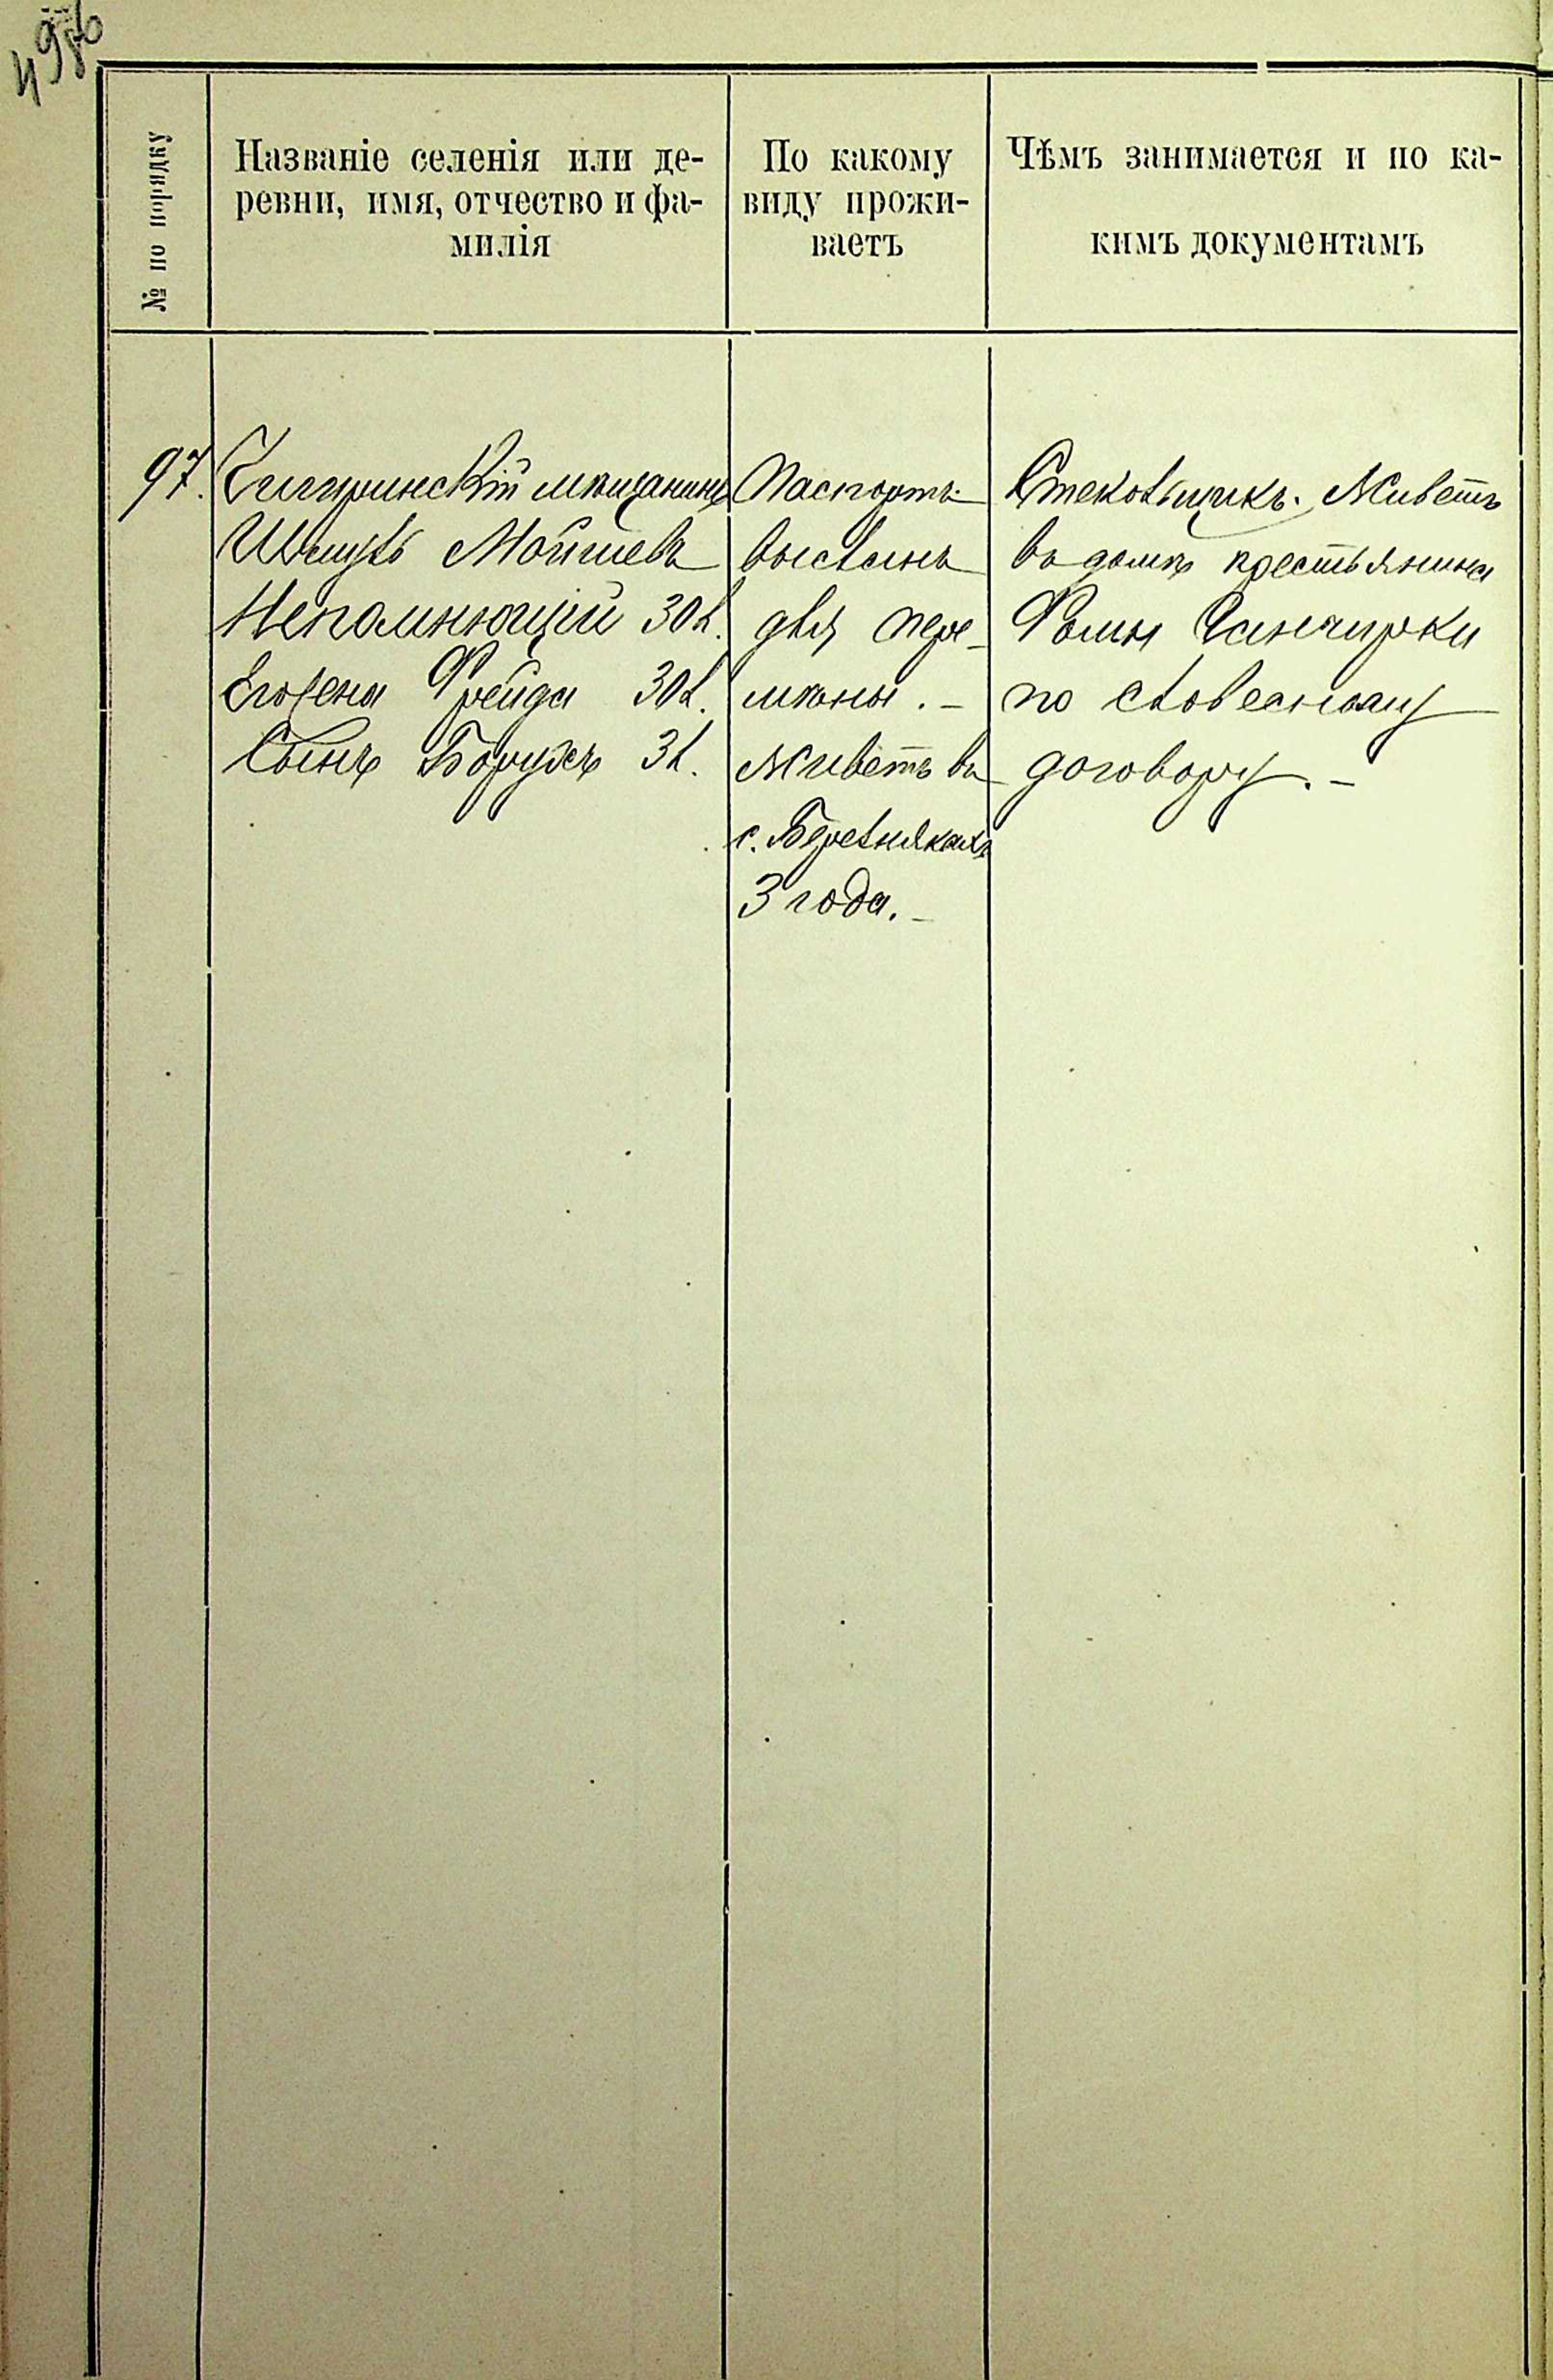 № по порядку
Названіе селенія или де-
ревни, имя, отчество и фа-
милія
По какому
виду прожи-
ваетъ
Чѣмъ занимается и по ка-
кимъ документамъ
97.
Чигиринскій мѣщанинъ
Шмуль Мойшевъ
Непомнющій 30 л.
Его жена Фрейда 30 л.
Сынъ Борухъ 3 л.
Паспортъ
высланъ
для пере-
мѣны. –
Живетъ въ
с. Березнякахъ
3 года. –
Стекольщикъ. Живетъ
въ домѣ крестьянина
Фомы
по словесному
договору. –